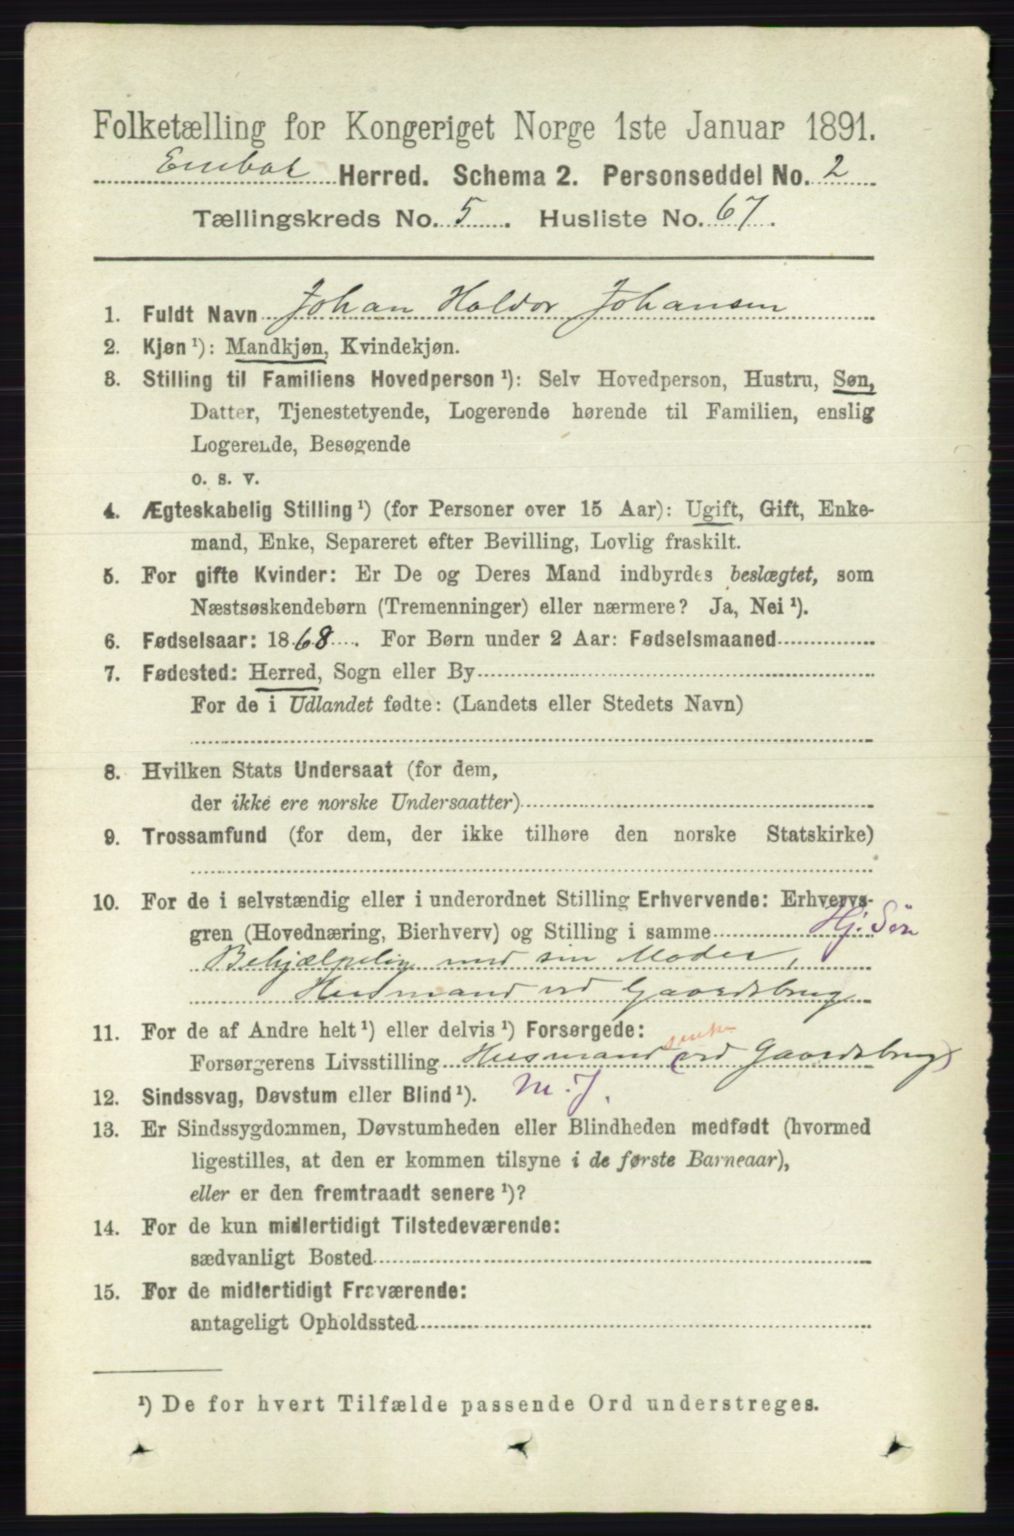 Folketælling for Kongeriget Norge 1ste Januar 1891.
Herred. Schema 2. Personseddel No. 2
Tællingskreds No. 5. Husliste No. 67.
1. Fuldt Navn Johan Haldor Johansen
2. Kjøn ¹): Mandkjøn, Kvindekjøn.
3. Stilling til Familiens Hovedperson ¹): Selv Hovedperson, Hustru, Søn,
Datter, Tjenestetyende, Logerende hørende til Familien, enslig
Logerende, Besøgende
o. s. v.
4. Ægteskabelig Stilling ¹) (for Personer over 15 Aar): Ugift, Gift, Enke-
mand, Enke, Separeret efter Bevilling, Lovlig fraskilt.
5. For gifte Kvinder: Er De og Deres Mand indbyrdes beslægtet, som
Næstsøskendebørn (Tremenninger) eller nærmere? Ja, Nei ¹).
6. Fødselsaar: 1868. For Børn under 2 Aar: Fødselsmaaned
7. Fødested: Herred, Sogn eller By
For de i Udlandet fødte: (Landets eller Stedets Navn)
8. Hvilken Stats Undersaat (for dem,
der ikke ere norske Undersaatter)
9. Trossamfund (for dem, der ikke tilhøre den norske Statskirke)
10. For de i selvstændig eller i underordnet Stilling Erhvervende: Erhvervs-
gren (Hovednæring, Bierhverv) og Stilling i samme Hj. Søn
Behjælpelig med sin Moder,
Husmand ved Gaardsbrug
11. For de af Andre helt ¹) eller delvis ¹) Forsørgede:
Forsørgerens Livsstilling Husmand ved Gaardsbrug
12. Sindssvag, Døvstum eller Blind ¹). m. J.
13. Er Sindssygdommen, Døvstumheden eller Blindheden medfødt (hvormed
ligestilles, at den er kommen tilsyne i de første Barneaar),
eller er den fremtraadt senere ¹)?
14. For de kun midlertidigt Tilstedeværende:
sædvanligt Bosted
15. For de midlertidigt Fraværende:
antageligt Opholdssted
¹) De for hvert Tilfælde passende Ord understreges.